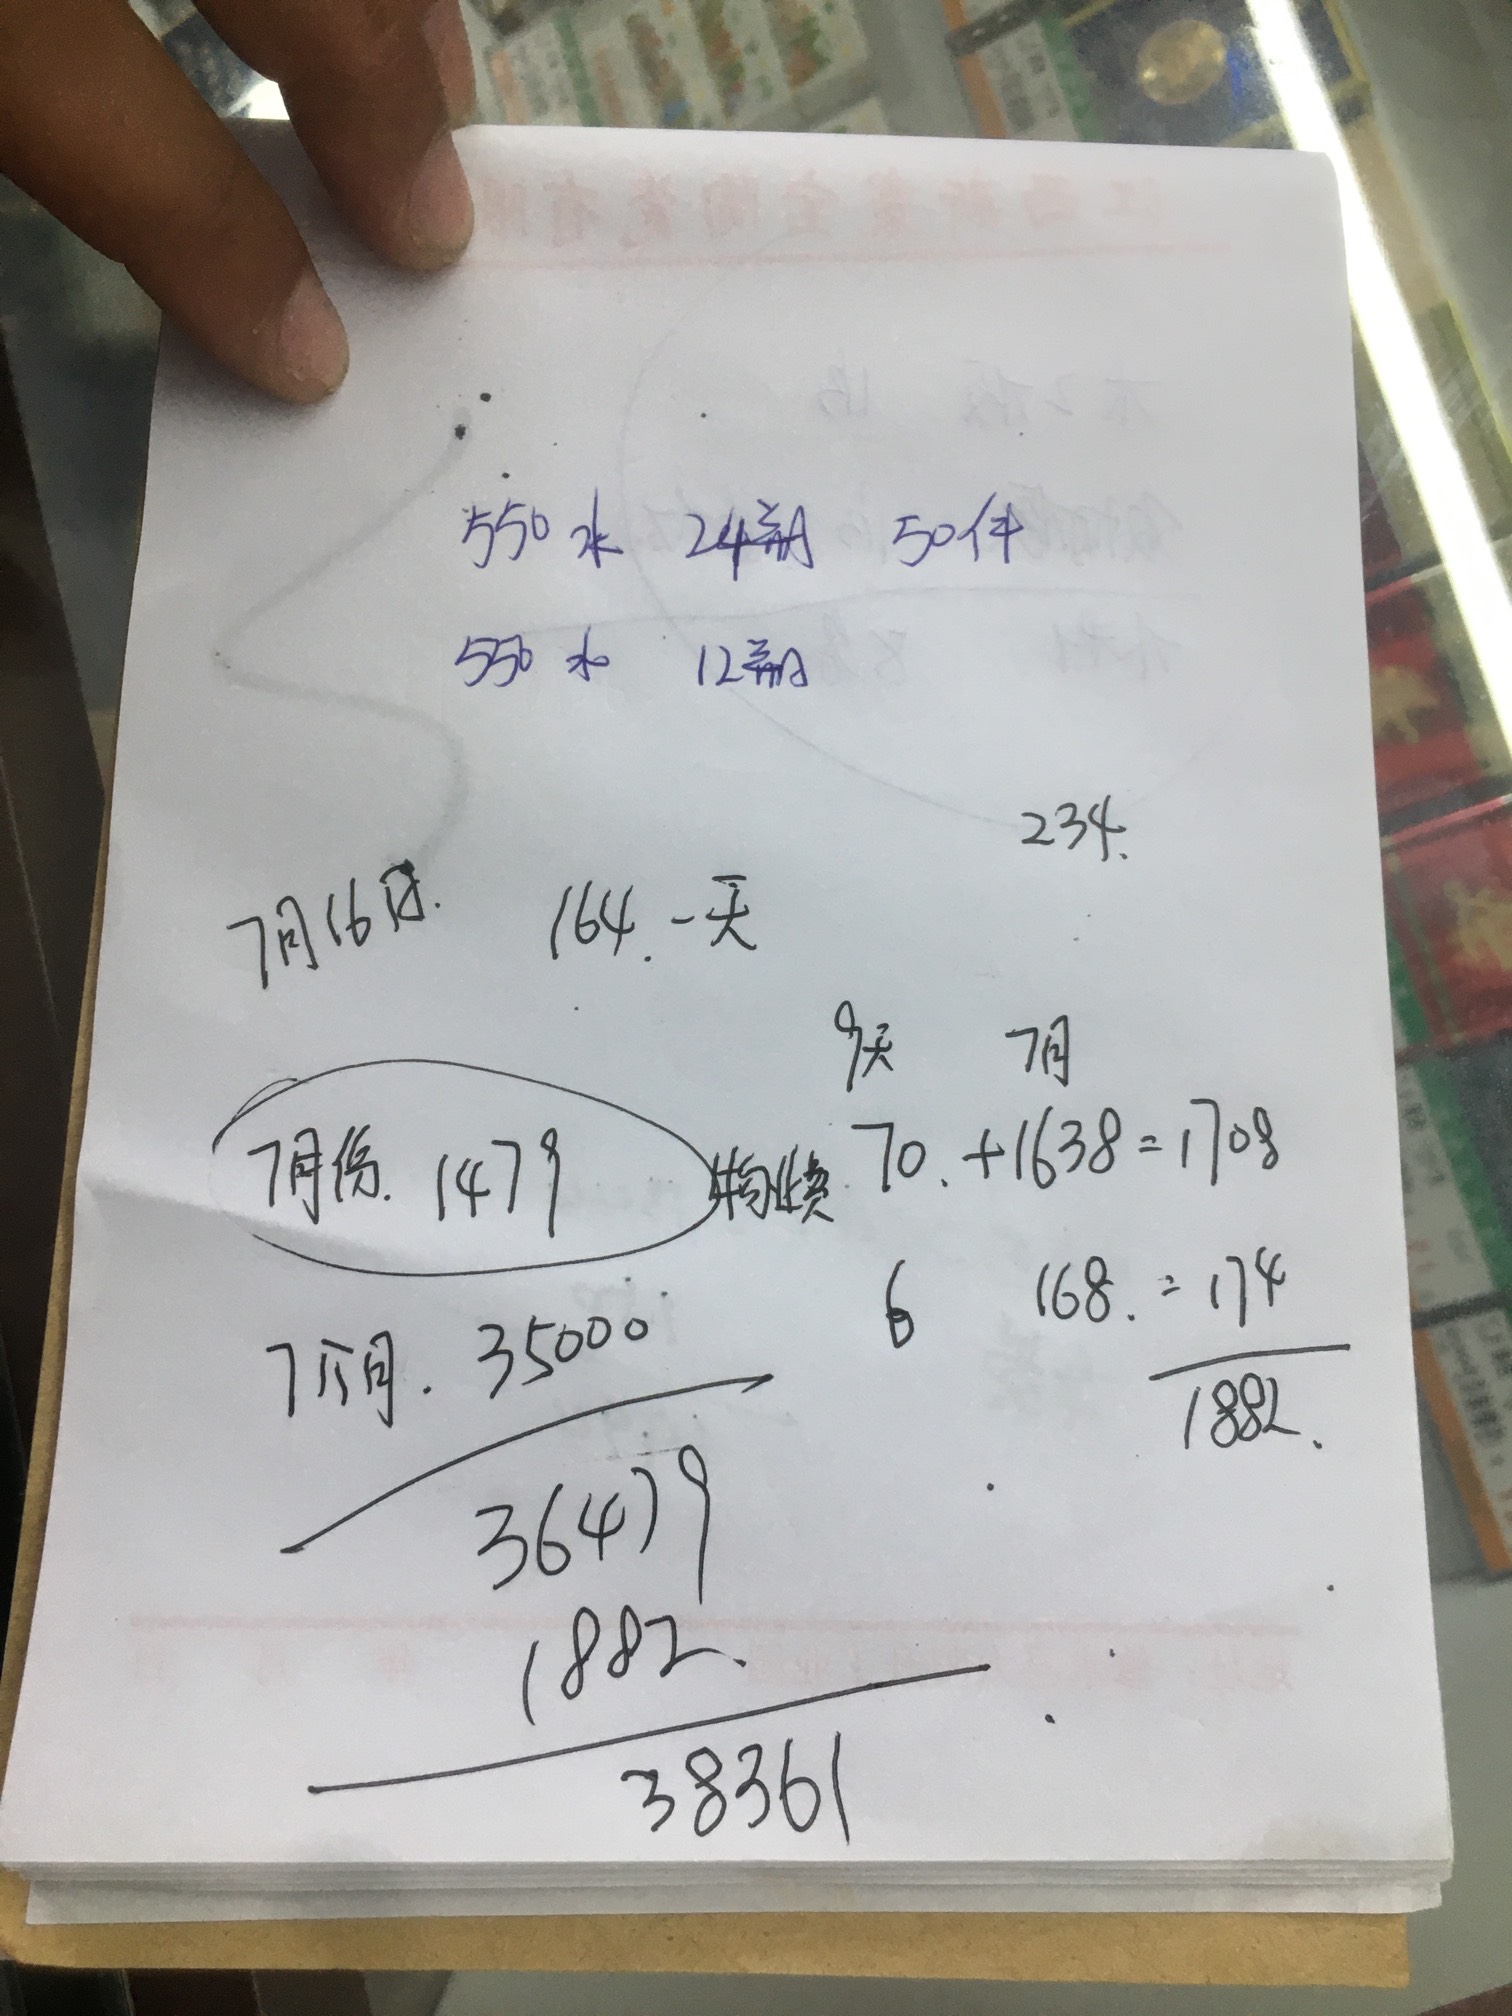 550水 24瓶 50件
550水 12瓶
234.
7月16日. 164.一天
9天 7月
7月份. 1479 物业费 70. +1638=1708
6 168. = 174
7个月. 35000
1882.
36479
1882.
38361